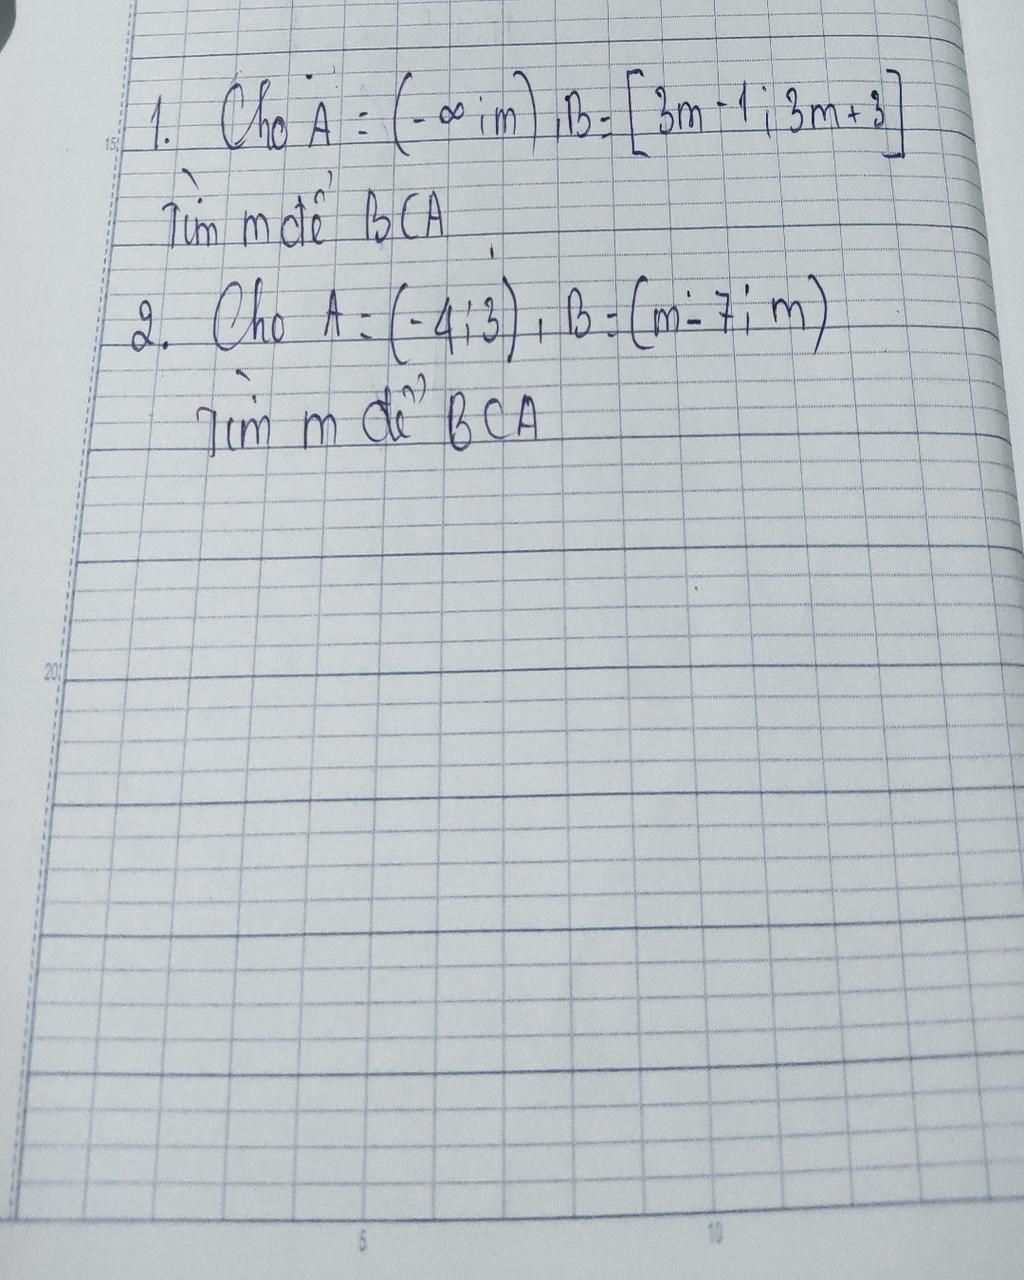 1. Cho A = (-∞; m), B = [3m - 1; 3m + 3]
15
Tìm m để B⊂A
2. Cho A = (-4; 3), B = (m - 7; m)
Tìm m để B⊂A
20
5 10